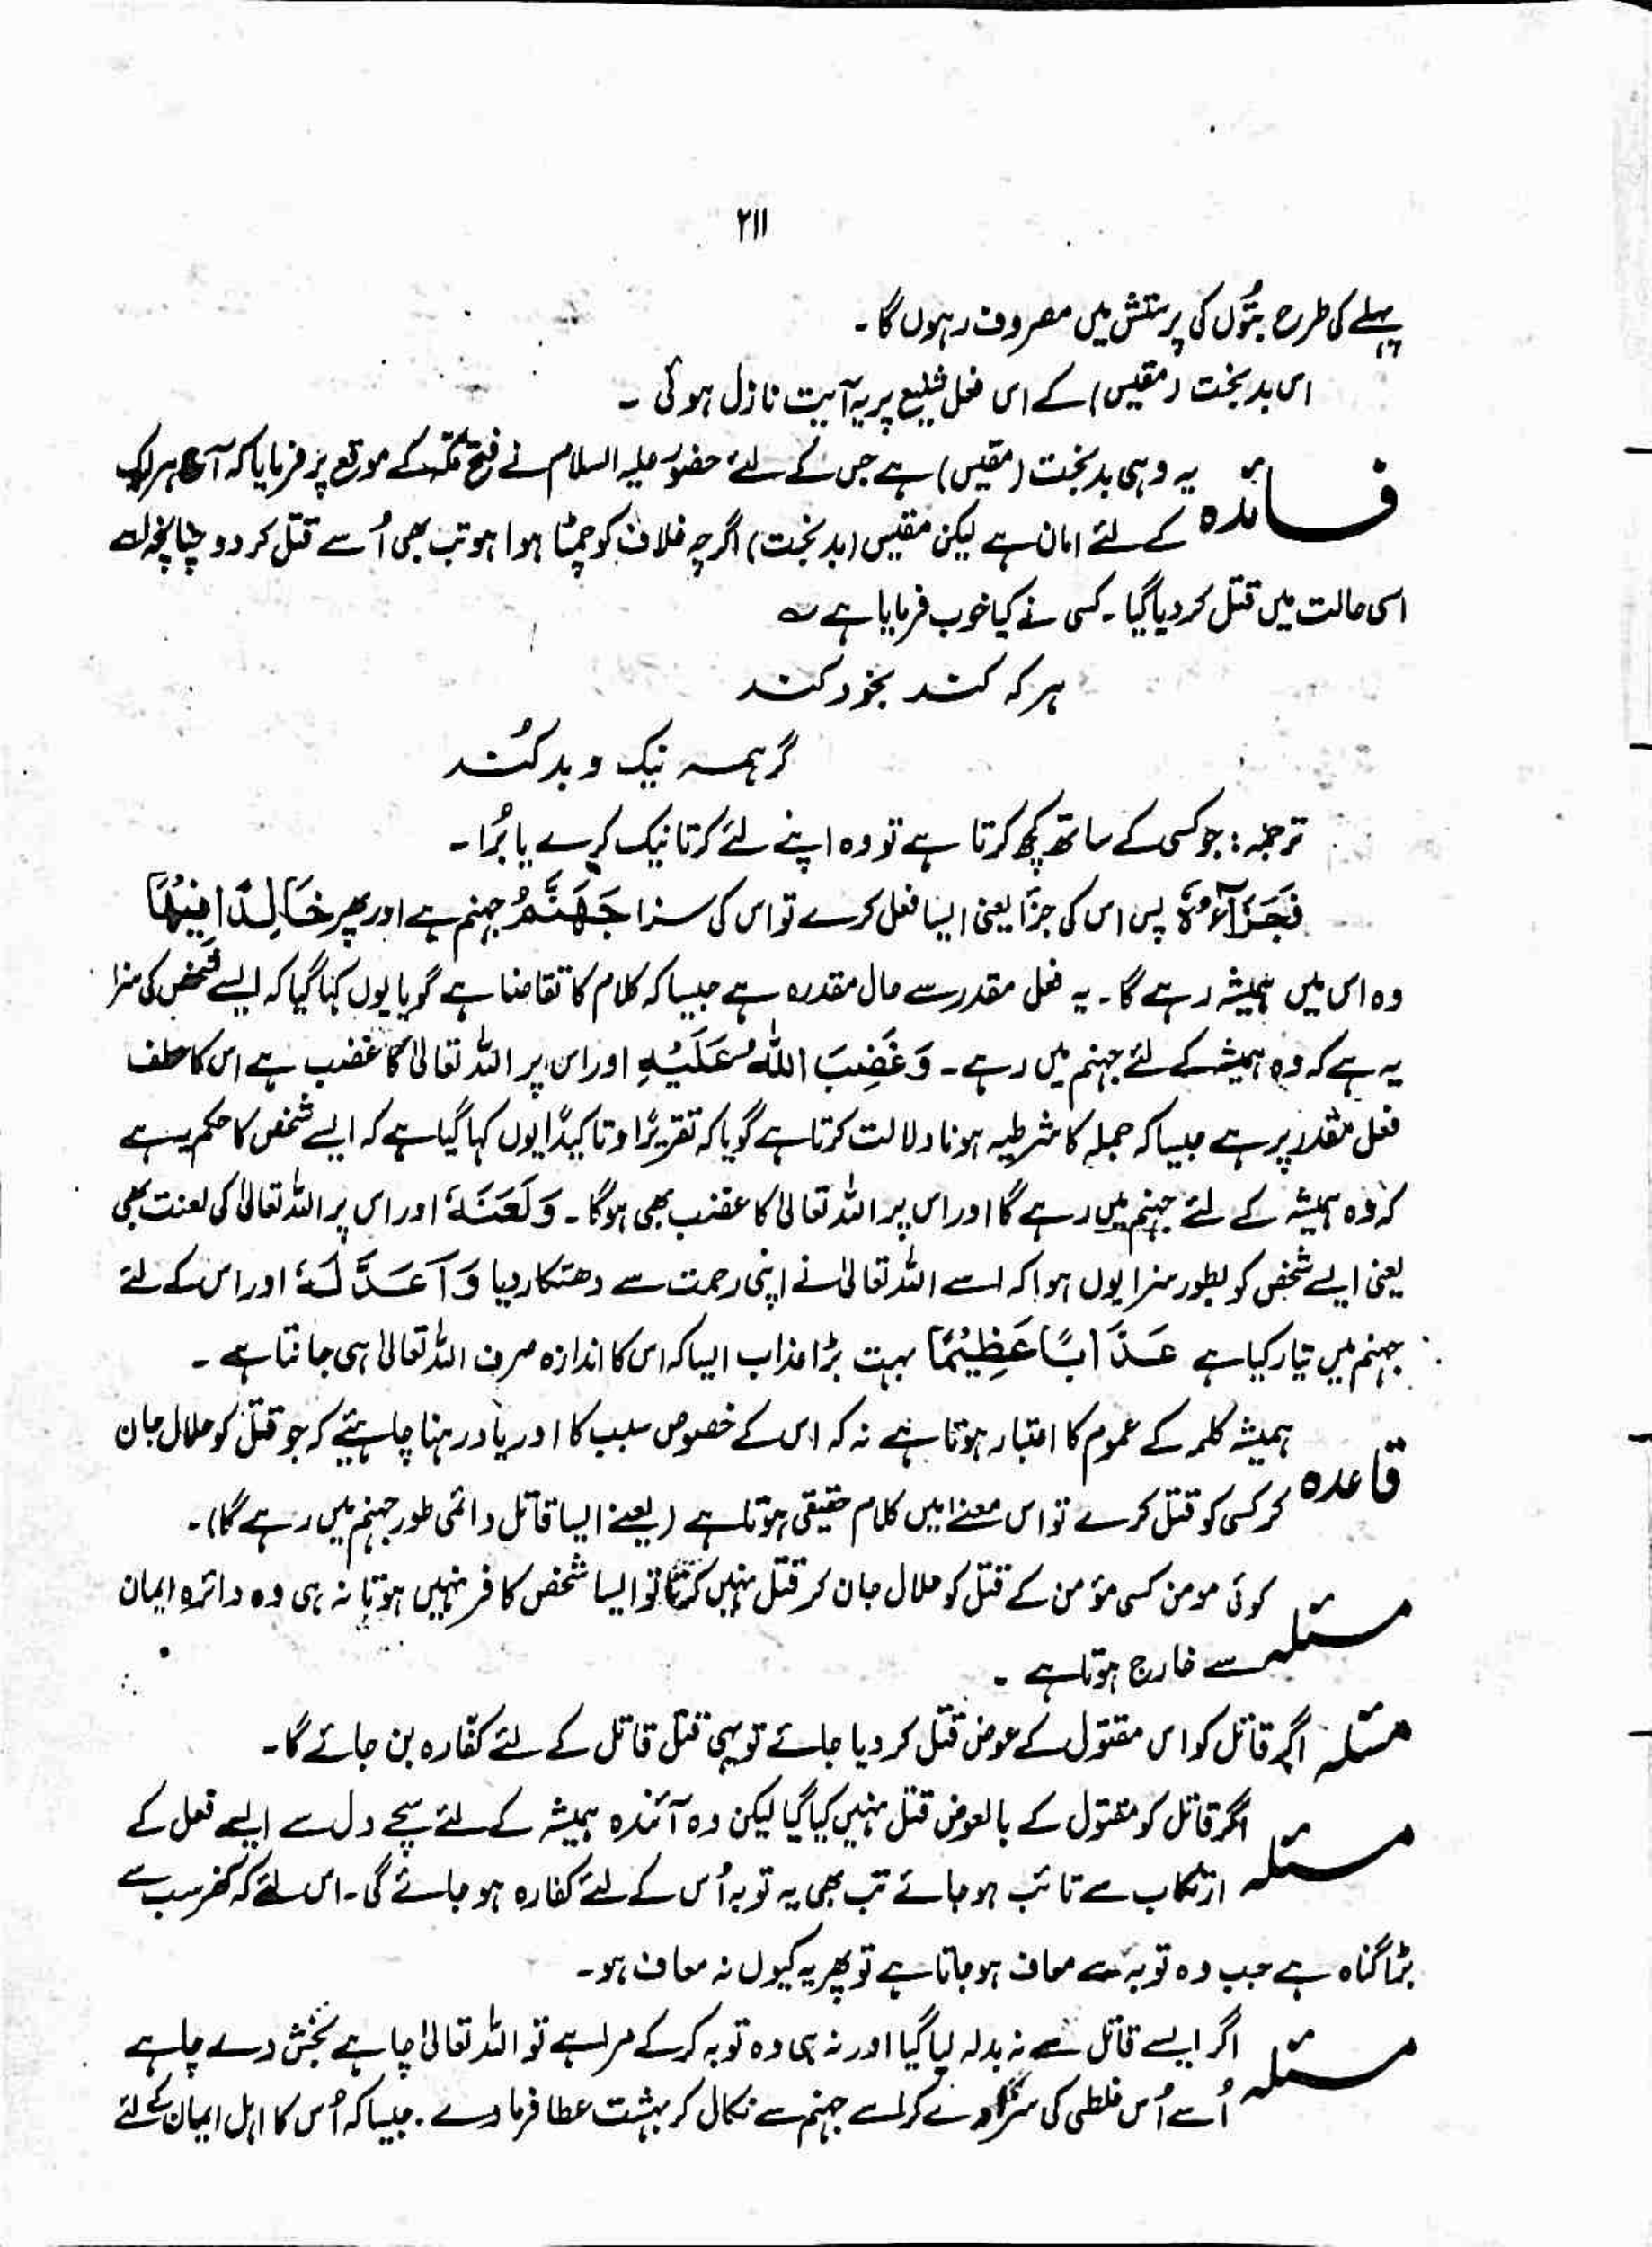 ۲۱۱
پہلے کی طرح بتُوں کی پرستش میں مصروف رہوں گا۔
اس بدبخت (مقیس) کے اس فعل شنیع پر یہ آیت نازل ہوئی ۔
فائدہ یہ وہی بدبخت (مقیس) ہے جس کے لئے حضور علیہ السلام نے فتح مکہ کے موقع پر فرمایا کہ آج ہر ایک
کے لئے امان ہے لیکن مقیس (بدبخت) اگرچہ غلاف کو چمٹا ہوا ہو تب بھی اُسے قتل کر دو چنانچہ اسے
اسی حالت میں قتل کر دیا گیا ۔ کسی نے کیا خوب فرمایا ہے ؎
ہر کہ کند بخود کند
گر ہمہ نیک و بد کُند
ترجمہ : جو کسی کے ساتھ کچھ کرتا ہے تو وہ اپنے لئے کرتا نیک کرے یا بُرا ۔
فَجَزَآءُهٗ پس اس کی جزا یعنی ایسا فعل کرے تو اس کی سزا جَهَنَّمُ جہنم ہے اور پھر خَالِدًا فِيْهَا
وہ اس میں ہمیشہ رہے گا ۔ یہ فعل مقدر سے حال مقدرہ ہے جیسا کہ کلام کا تقاضا ہے گویا یوں کہا گیا کہ ایسے شخص کی سزا
یہ ہے کہ وہ ہمیشہ کے لئے جہنم میں رہے ۔ وَغَضِبَ اللّٰهُ عَلَيْهِ اور اس پر اللہ تعالیٰ کا غضب ہے اس کا عطف
فعل مقدر پر ہے جیسا کہ جملہ کا شرطیہ ہونا دلالت کرتا ہے گویا کہ تقریرًا و تاکیدًا یوں کہا گیا ہے کہ ایسے شخص کا حکم یہ ہے
کہ وہ ہمیشہ کے لئے جہنم میں رہے گا اور اس پر اللہ تعالیٰ کا غضب بھی ہوگا ۔ وَلَعَنَهٗ اور اس پر اللہ تعالیٰ کی لعنت بھی
یعنی ایسے شخص کو بطور سزا یوں ہوا کہ اسے اللہ تعالیٰ نے اپنی رحمت سے دھتکار دیا وَاَعَدَّ لَهٗ اور اس کے لئے
جہنم میں تیار کیا ہے عَذَابًا عَظِيْمًا بہت بڑا عذاب ایسا کہ اس کا اندازہ صرف اللہ تعالیٰ ہی جانتا ہے ۔
قاعدہ ہمیشہ کلمہ کے عموم کا اعتبار ہوتا ہے نہ کہ اس کے خصوص سبب کا اور یاد رہنا چاہئیے کہ جو قتل کو حلال جان
کر کسی کو قتل کرے تو اس معنے میں کلام حقیقی ہوتا ہے (یعنے ایسا قاتل دائمی طور جہنم میں رہے گا)۔
مسئلہ کوئی مومن کسی مؤمن کے قتل کو حلال جان کر قتل نہیں کرتا تو ایسا شخص کافر نہیں ہوتا نہ ہی وہ دائرہ ایمان
سے خارج ہوتا ہے ۔
مسئلہ اگر قاتل کو اس مقتول کے عوض قتل کر دیا جائے تو یہی قتل قاتل کے لئے کفارہ بن جائے گا۔
مسئلہ اگر قاتل کو مقتول کے بالعوض قتل نہیں کیا گیا لیکن وہ آئندہ ہمیشہ کے لئے سچے دل سے ایسے فعل کے
ارتکاب سے تائب ہو جائے تب بھی یہ توبہ اُس کے لئے کفارہ ہو جائے گی ۔ اس لئے کہ کفر سب سے
بڑا گناہ ہے جب وہ توبہ سے معاف ہو جاتا ہے تو پھر یہ کیوں نہ معاف ہو۔
مسئلہ اگر ایسے قاتل سے نہ بدلہ لیا گیا اور نہ ہی وہ توبہ کر کے مرا ہے تو اللہ تعالیٰ چاہے بخش دے چاہے
اُسے اُس غلطی کی سزا دے کر اسے جہنم سے نکال کر بہشت عطا فرما دے ۔ جیسا کہ اُس کا اہل ایمان کے لئے